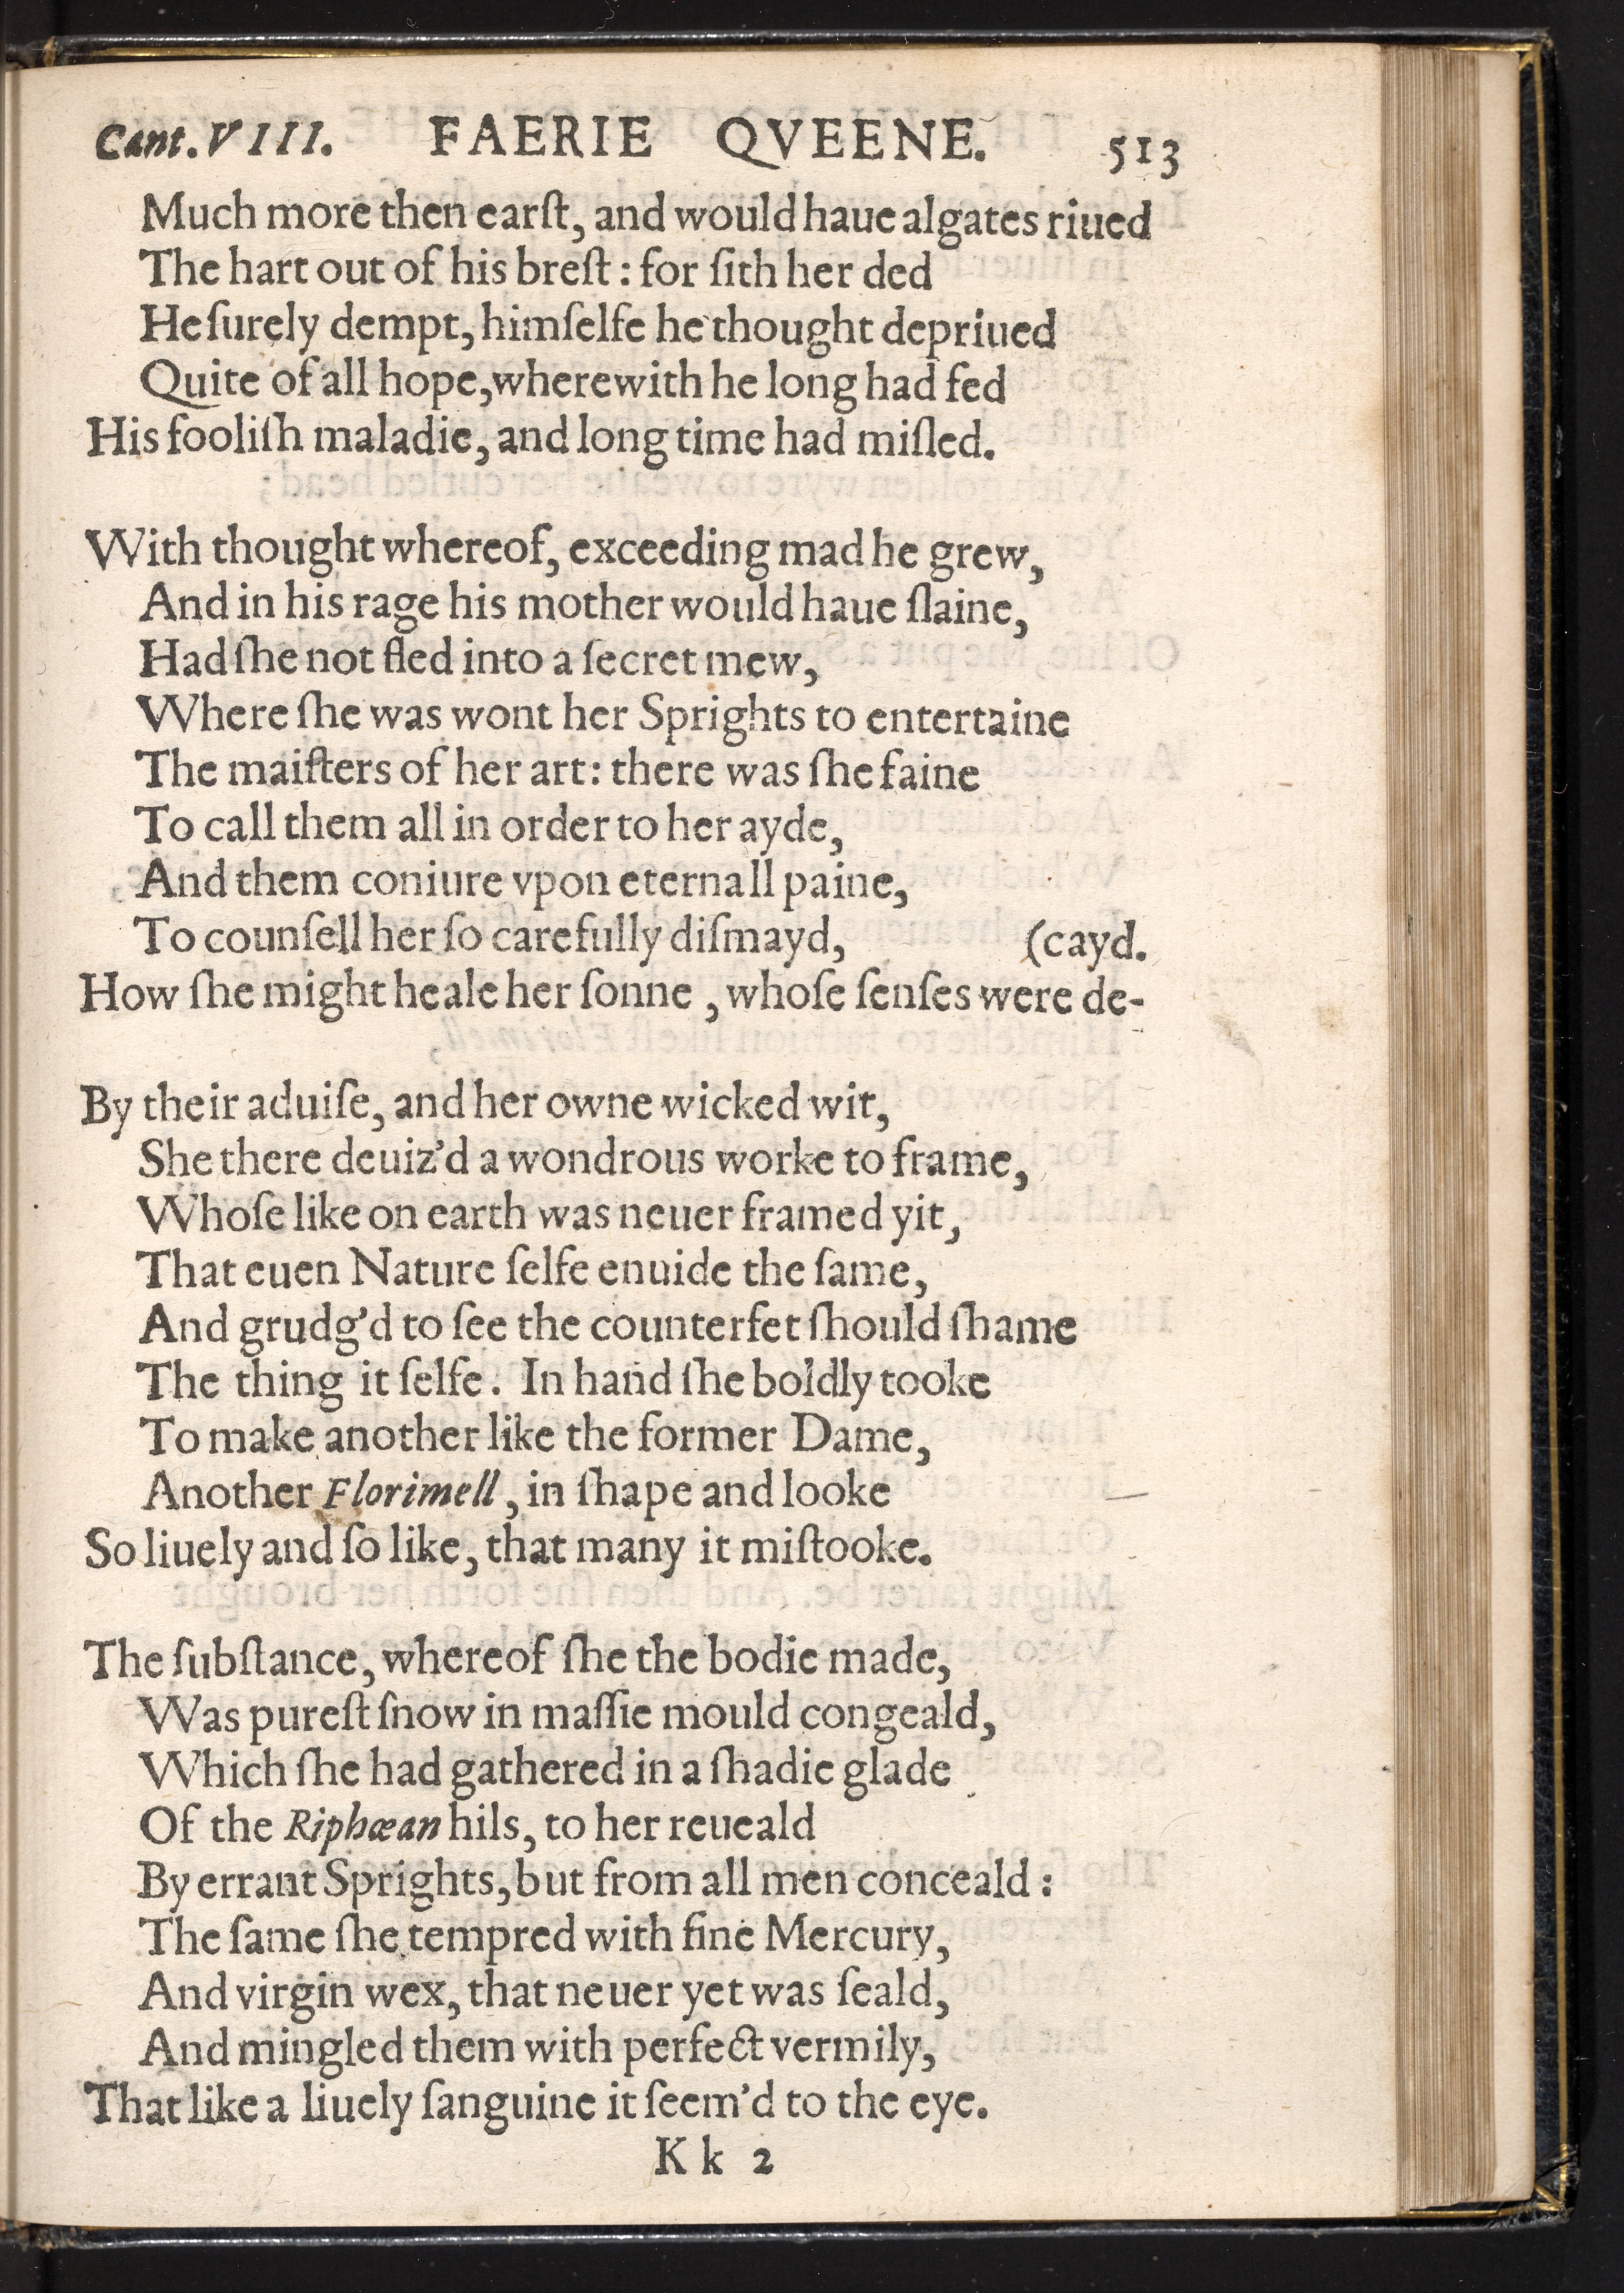 Cant. VIII. FAERIE QVEENE. 513
Much more then earſt, and would haue algates riued
The hart out of his breſt: for ſith her ded
He ſurely dempt, himſelfe he thought depriued
Quite of all hope, wherewith he long had fed
His fooliſh maladie, and long time had miſled.
With thought whereof, exceeding mad he grew,
And in his rage his mother would haue ſlaine,
Had ſhe not fled into a ſecret mew,
Where ſhe was wont her Sprights to entertaine
The maiſters of her art: there was ſhe faine
To call them all in order to her ayde,
And them coniure vpon eternall paine,
To counſell her ſo carefully diſmayd, (cayd.
How ſhe might heale her ſonne, whoſe ſenſes were de-
By their aduiſe, and her owne wicked wit,
She there deuiz'd a wondrous worke to frame,
Whoſe like on earth was neuer framed yit,
That euen Nature ſelfe enuide the ſame,
And grudg'd to ſee the counterfet ſhould ſhame
The thing it ſelfe. In hand ſhe boldly tooke
To make another like the former Dame,
Another Florimell, in ſhape and looke
So liuely and ſo like, that many it miſtooke.
The ſubſtance, whereof ſhe the bodie made,
Was pureſt ſnow in maſſie mould congeald,
Which ſhe had gathered in a ſhadie glade
Of the Riphœan hils, to her reueald
By errant Sprights, but from all men conceald:
The ſame ſhe tempred with fine Mercury,
And virgin wex, that neuer yet was ſeald,
And mingled them with perfect vermily,
That like a liuely ſanguine it ſeem'd to the eye.
Kk 2